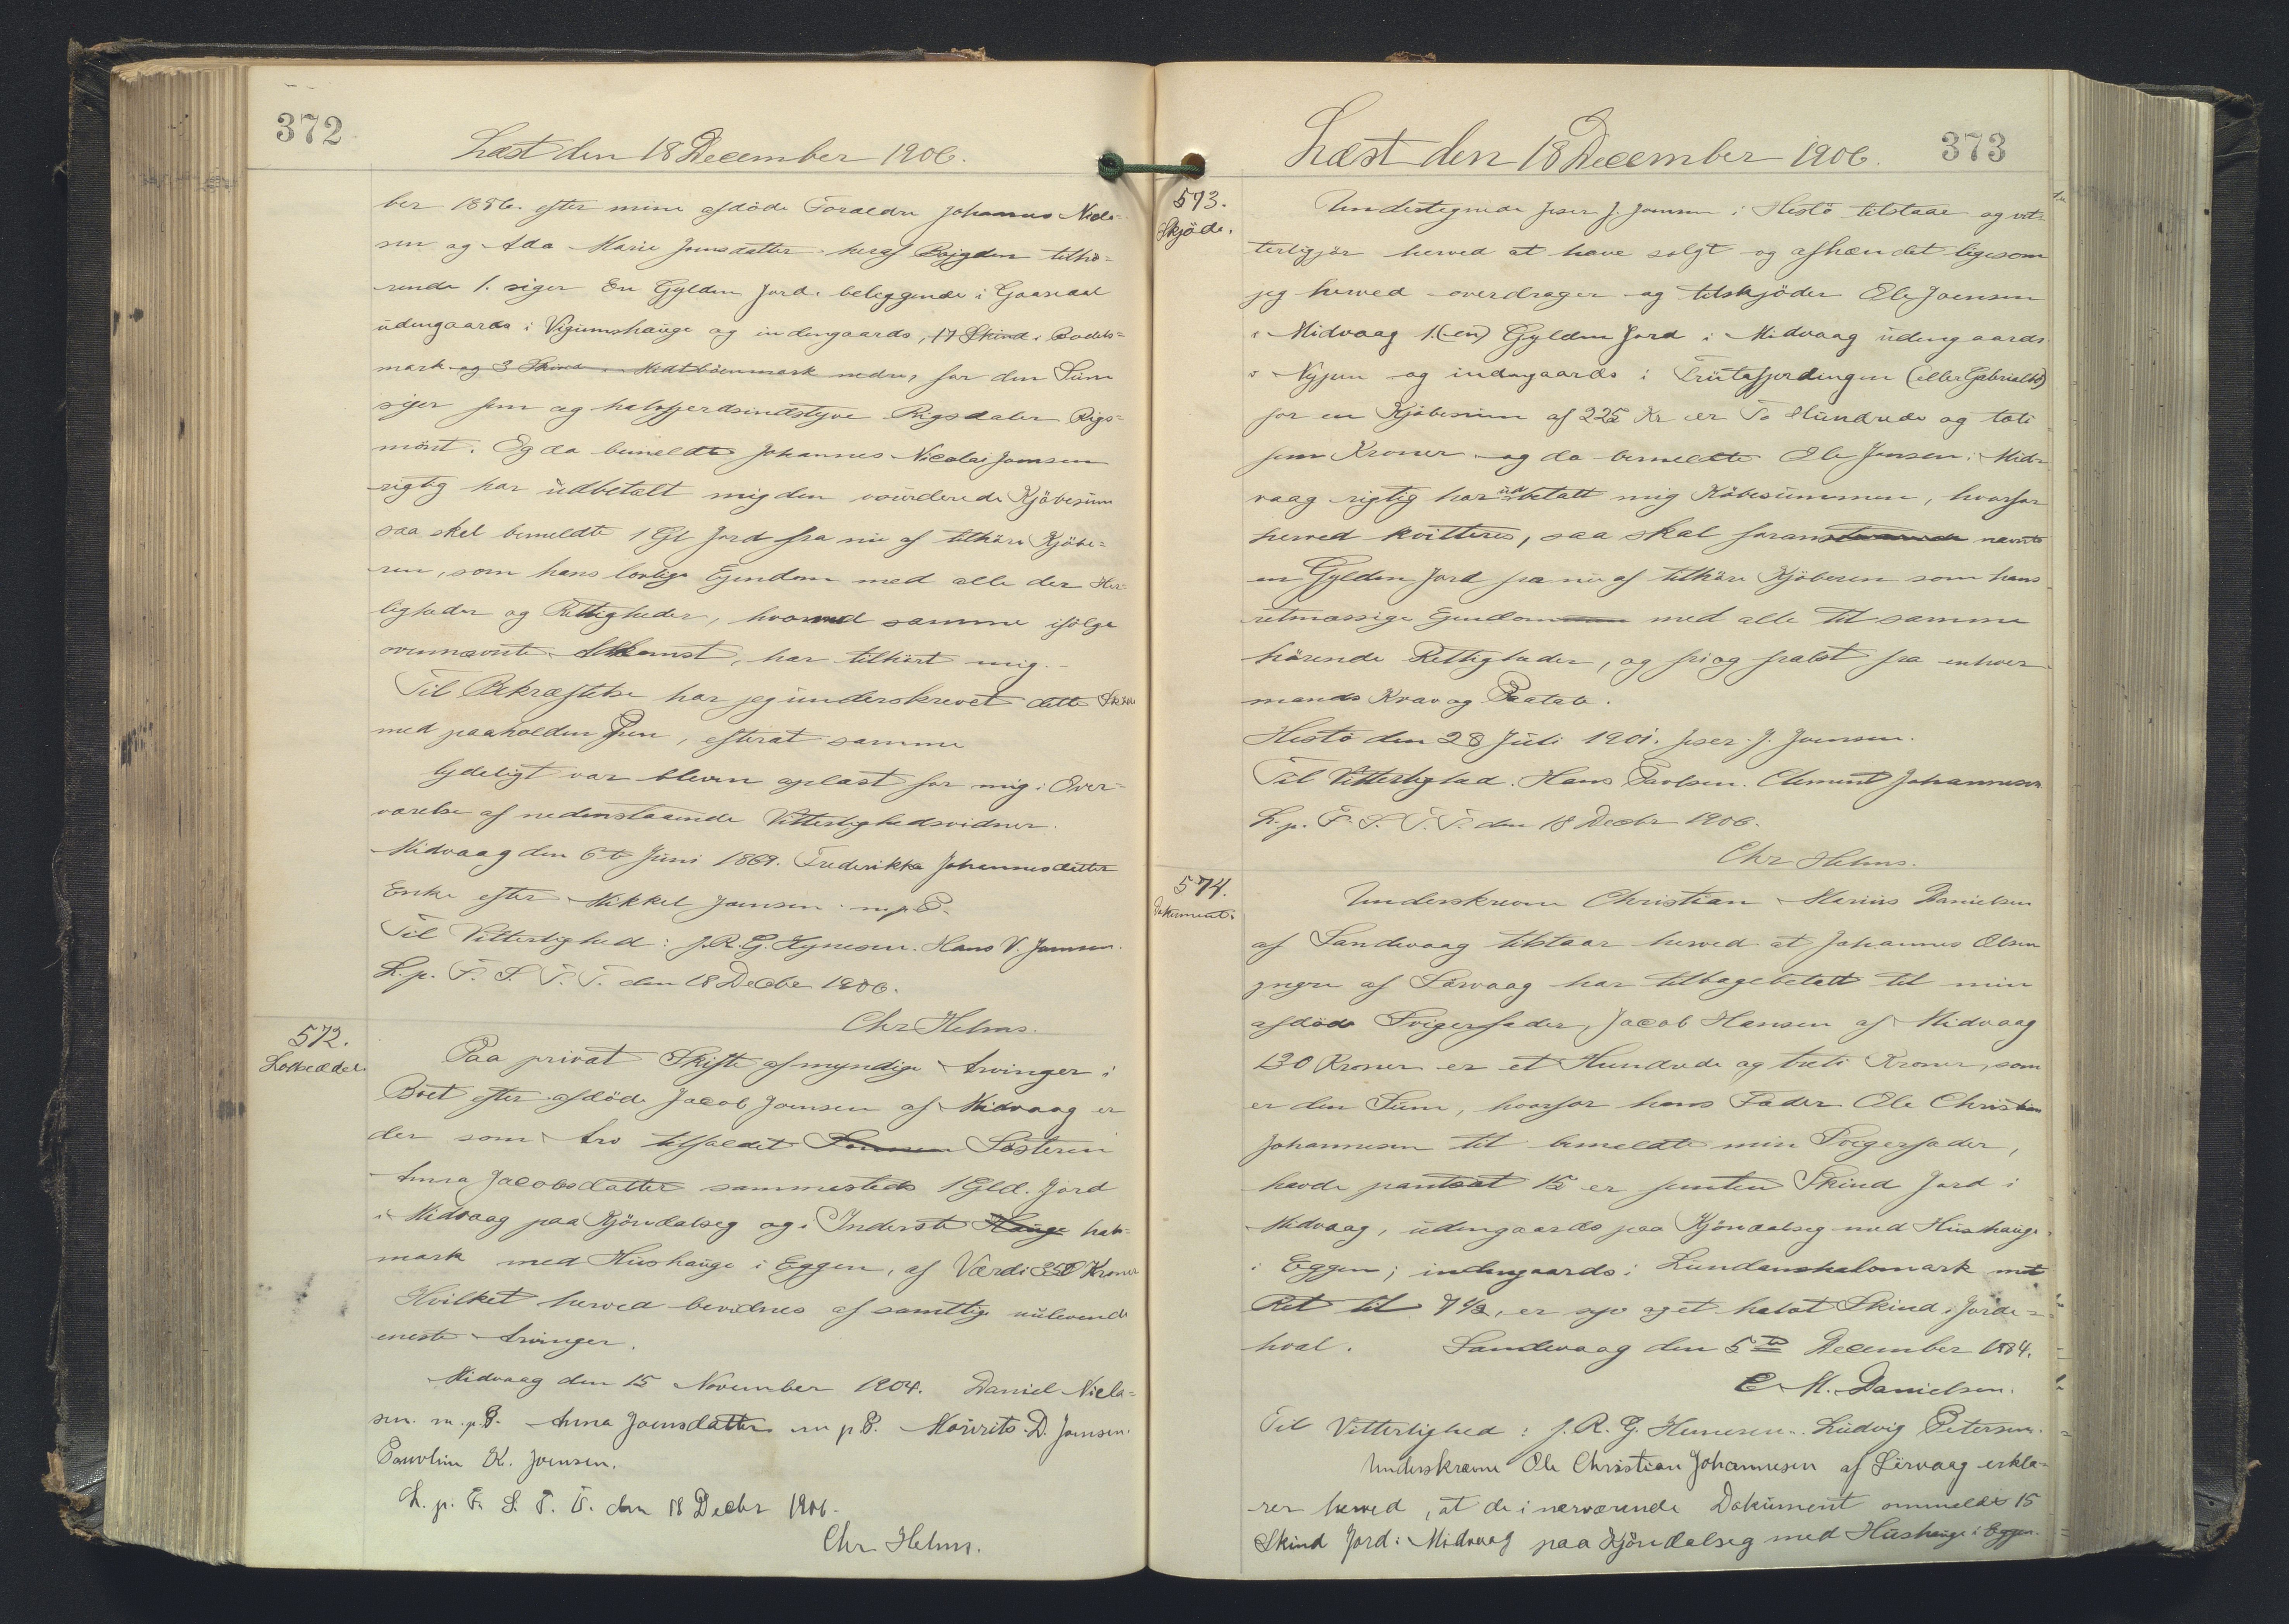 372
Læst den 18 December 1906.
ber 1856. efter mine afdöde Forældre Johannes Niels=
sen og Ada Marie Joensdatter heraf Bøjgden tilhö=
rende 1. siger En Gylden Jord, beliggende i Gaasedal
udengaards i Vigumshauge og indengaards, 17 Skind i Bodels=
mark og 3 Skind i Midtböenmark nedre, for den Sum
siger fem og halvfjerdsindstyve Rigsdaler Rigs=
mönt. Og da bemeldte Johannes Nicolai Joensen
rigtig har udbetalt mig den vurderede Kjöbesum
saa skal bemeldte 1 Gl Jord fra nu af tilhöre Kjöbe=
ren, som hans lovlige Ejendom med alle der Her-
ligheder og Rettigheder, hvormed samme ifölge
ovennævnte Adkomst, har tilhört mig. -
Til Bekræftelse har jeg underskrevet dette Sköde
med paaholden Pen, efterat samme
lydeligt var bleven oplæst for mig i Over=
værelse af nedenstaaende Vitterlighedsvidner.
Midvaag den 6te Juni 1869. Frederikka Johannesdatter
Enke efter Mikkel Joensen m. p. P.
Til Vitterlighed: J. R. G. Hynesen. Hans V. Joensen.
L. p. F. S. T. T. den 18 Decbr 1906.
Chr Helms.
572.
Lodseddel.
Paa privat Skifte af myndige Arvinger i
Boet efter afdöde Jacob Joensen af Midvaag er
der som Arv tilfaldet Sönnen Sösteren
Anna Jacobsdatter sammesteds 1 Gld. Jord
i Midvaag paa Kjöndalseg og i Inderste Hauge hals=
mark med Hushauge i Eggen, af Værdi 350 Kroner
Hvilket herved bevidnes af samtlige nulevende
eneste Arvinger.
Midvaag den 15 November 1904. Daniel Niela=
sen. m. p. P. Anna Joensdatter m p P. Mourits D. Joensen.
Pauline K. Joensen.
L. p. F. S. T. T. den 18 Decbr 1906.
Chr Helms.
Læst den 18 December 1906.
373
573.
Skjöde.
Undertegnede Jeser J. Joensen i Hestö tilstaar og vit=
terligjör herved at have solgt og afhændet ligesom
jeg herved overdrager og tilskjöder Ole Joensen
i Midvaag 1.(en) Gylden Jord i Midvaag udengaards
i Nyjun og indengaards i Trutafjerdingen (eller Gabrielsb)
for en Kjöbesum af 225 Kr er To Hundrede og toti
fem Kroner og da bemeldte Ole Jonsen i Mid-
vaag rigtig har udbetalt mig Köbesummen, hvorfor
herved kvitteres, saa skal foranstaaende nævnte
en Gylden Jord fra nu af tilhöre Kjöberen som hans
retmæssige Ejendom med alle til samme
hörende Rettigheder, og fri og frelst fra enhver
mands Krav og Paatale.
Hestö den 28 Juli 1901. Jeser J. Joensen.
Til Vitterlighed. Hans Poulsen. Clement Johannesen
L. p. F. S. T. T. den 18 Decbr 1906.
Chr Helms.
574.
Dokument.
Underskrevne Christian Marius Danielsen
af Sandevaag tilstaar herved at Johannes Olsen
yngre af Sörvaag har tilbagebetalt til min
afdöde Svigerfader, Jacob Hansen af Midvaag
130 Kroner er et Hundrede og treti Kroner, som
er den Sum, hvorfor hans Fader Ole Christian
Johannesen til bemeldte min Svigerfader,
havde pantsat 15 er femten Skind Jord i
Midvaag, udengaards paa Kjöndalseg med Hushauge
i Eggen; indengaards i Lundanshalsmark med
Ret til 7½, er syv og et halvt Skind i Jorde=
hval. Sandevaag den 5te December 1884.
C. M. Danielsen.
Til Vitterlighed: J. R. G. Hunesen. Ludvig Petersen.
Underskrevne Ole Christian Johannesen af Sörvaag erklæ-
rer herved, at de i nærværende Dokument ommeldte 15
Skind Jord i Midvaag paa Kjöndalseg med Hushauge i Eggen.